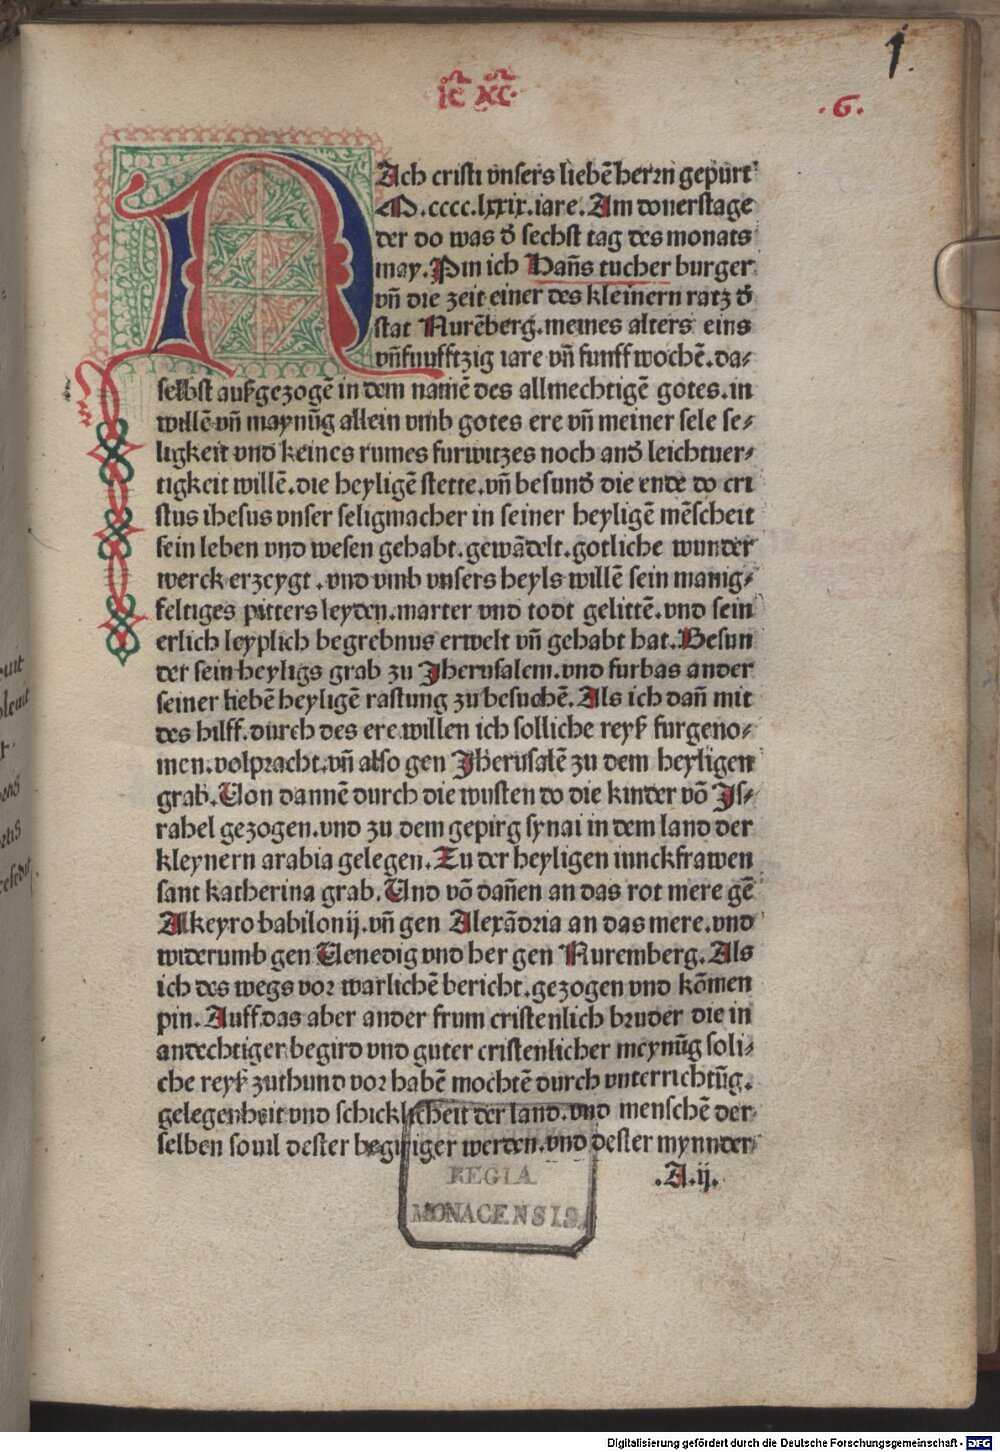 1.
ic xc.
.6.
NAch cristi vnsers liebē herrn gepurt
M.cccc.lxxix.iare. Am donerstage
der do was ð sechst tag des monats
may. Pin ich Hañs tucher burger
vñ die zeit einer des kleinern ratz ð
stat Nurēberg. meines alters eins
vñ funfftzig iare vñ funff wochē. da⸗
selbst auſzgezogē in dem namē des allmechtigē gotes. in
willē vñ maynūg allein vmb gotes ere vñ meiner sele se⸗
ligkeit vnd keines rumes furwitzes noch anð leichtuer⸗
tigkeit willē. die heyligē stette. vñ besunð die ende do cri
stus ihesus vnser seligmacher in seiner heyligē mēscheit
sein leben vnd wesen gehabt. gewādelt. gotliche wunder
werck erzeygt . vnd vmb vnsers heyls willē sein manig⸗
feltiges pitters leyden. marter vnd todt gelittē. vnd sein
erlich leyplich begrebnus erwelt vñ gehabt hat. Besun
der sein heyligs grab zu Jherusalem. vnd furbas ander
seiner liebē heyligē rastung zu besuchē. Als ich dañ mit
des hilff. durch des ere willen ich solliche reyſz furgeno⸗
men. volpracht. vñ also gen Jherusalē zu dem heyligen
grab. Von dannē durch die wusten do die kinder vō Js⸗
rahel gezogen. vnd zu dem gepirg synai in dem land der
kleynern arabia gelegen. Zu der heyligen iunckfrawen
sant katherina grab. Vnd vō dañen an das rot mere gē
Alkeyro babilonij. vñ gen Alexādria an das mere. vnd
widerumb gen Venedig vnd her gen Nuremberg. Als
ich des wegs vor warlichē bericht. gezogen vnd kōmen
pin. Auff das aber ander frum cristenlich bruder die in
andechtiger begird vnd guter cristenlicher meynūg soli⸗
che reyſz zuthund vor habē mochtē durch vnterrichtūg.
gelegenheit vnd schicklicheit der land. vnd menschē der
selben souil dester begiriger werden. vnd dester mynnder
.A.ij.
REGIA
MONACENSIS.
Digitalisierung gefördert durch die Deutsche Forschungsgemeinschaft - DFG